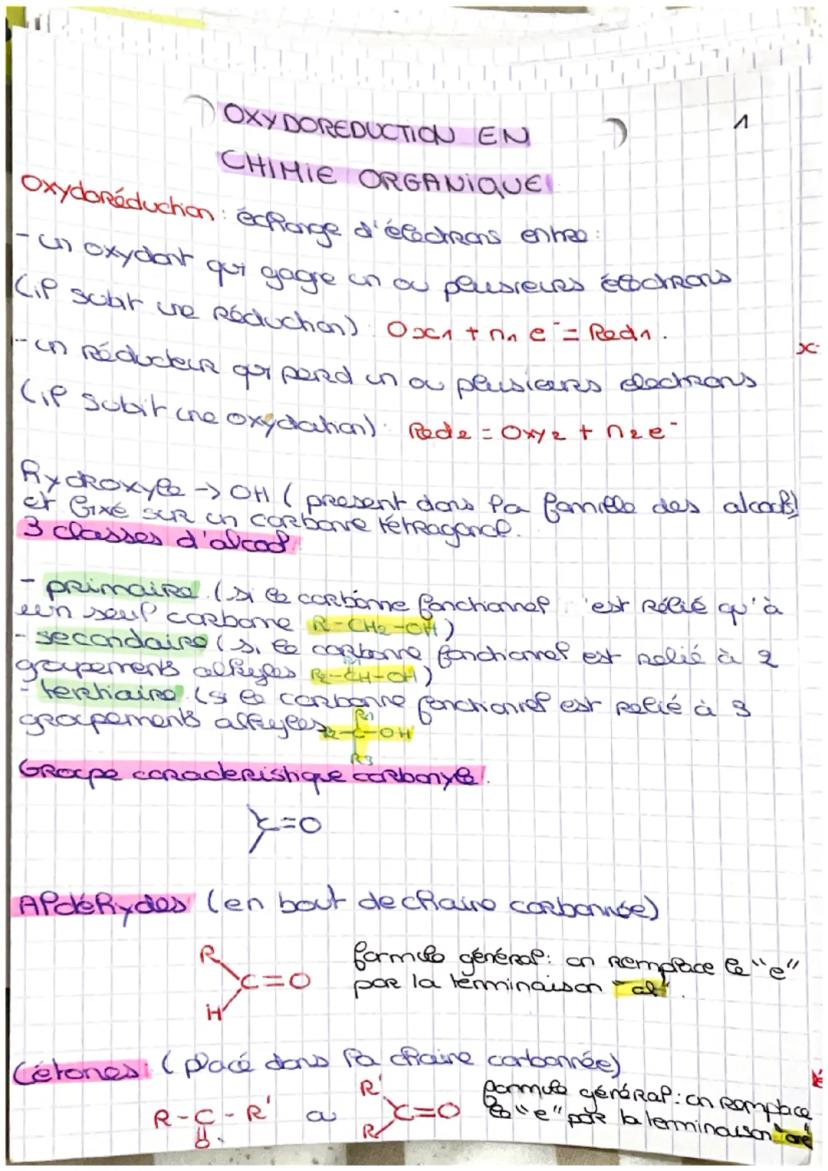 OXYDOREDUCTION EN
1
CHIMIE ORGANIQUE
Oxydoréduction : échange d'électrons entre :
- un oxydant qui gagne un ou plusieurs électrons
(il subit une réduction) : Ox1 + n1 e⁻ = Red1.
- un réducteur qui perd un ou plusieurs electrons
(il subit une oxydation) : Red2 = Oxy2 + n2 e⁻
hydroxyle -> OH ( present dans la famille des alcools)
et fixé sur un carbone tétragonal.
3 classes d'alcool
- primaire (si le carbone fonctionnel est rélié qu'à
un seul carbone R-CH2-OH)
- secondaire (si le carbone fonctionnel est relié à 2
groupements alkyles R-CH-OH)
- tertiaire (si le carbone fonctionnel est relié à 3
groupements alkyles
R1
R2-C-OH
R3
Groupe caracteristique carbonyle.
C=O
Aldéhydes (en bout de chaine carbonnée)
R
C=O
H
formule général: on remplace le "e"
par la terminaison "al".
Cétones : ( placé dans la chaine carbonnée)
R-C-R'
O
ou
R'
C=O
R
formule général: on remplace
le "e" par la terminaison